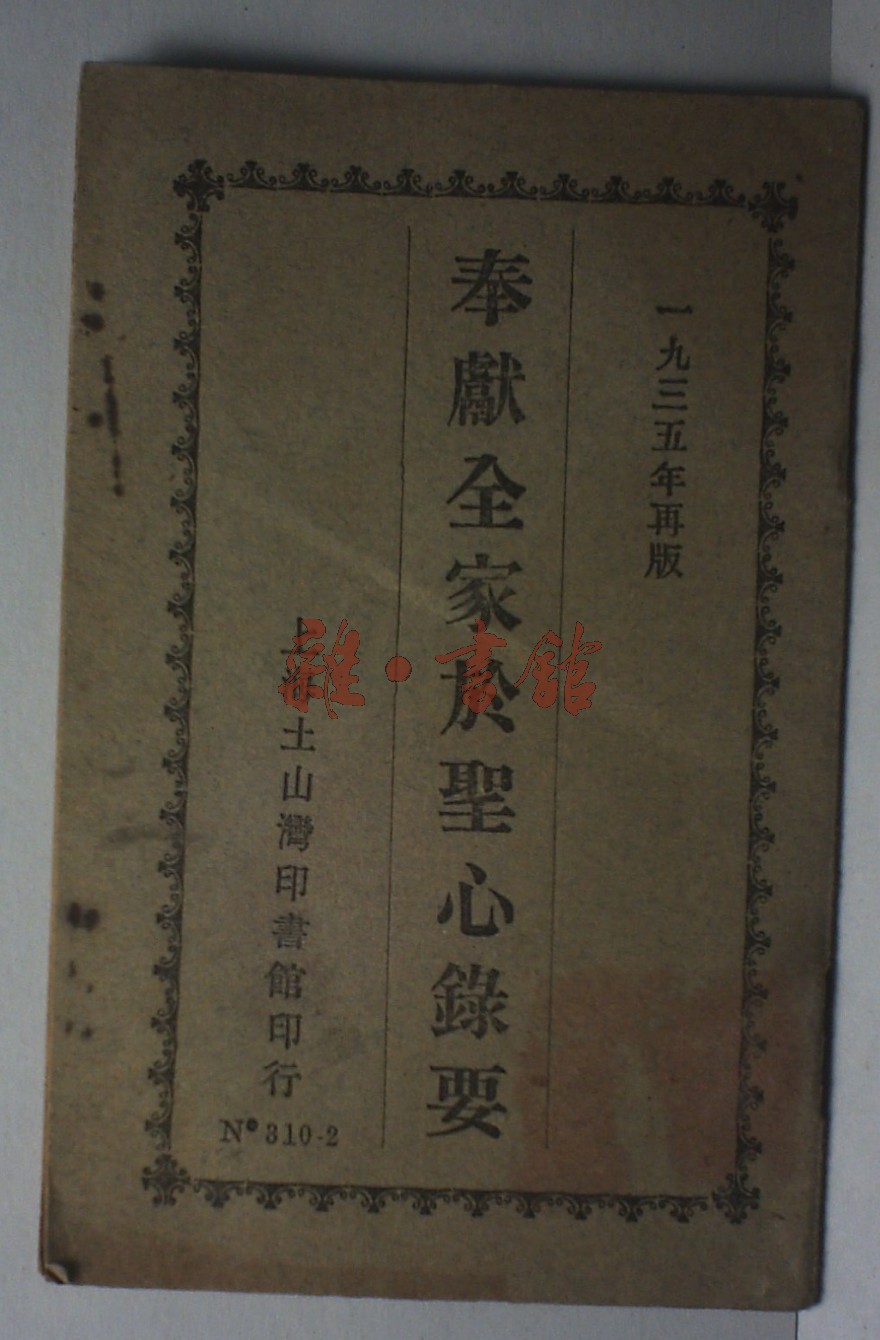 一九三五年再版
奉獻全家於聖心錄要
上海土山灣印書館印行
Nº 310-2
雜·書館